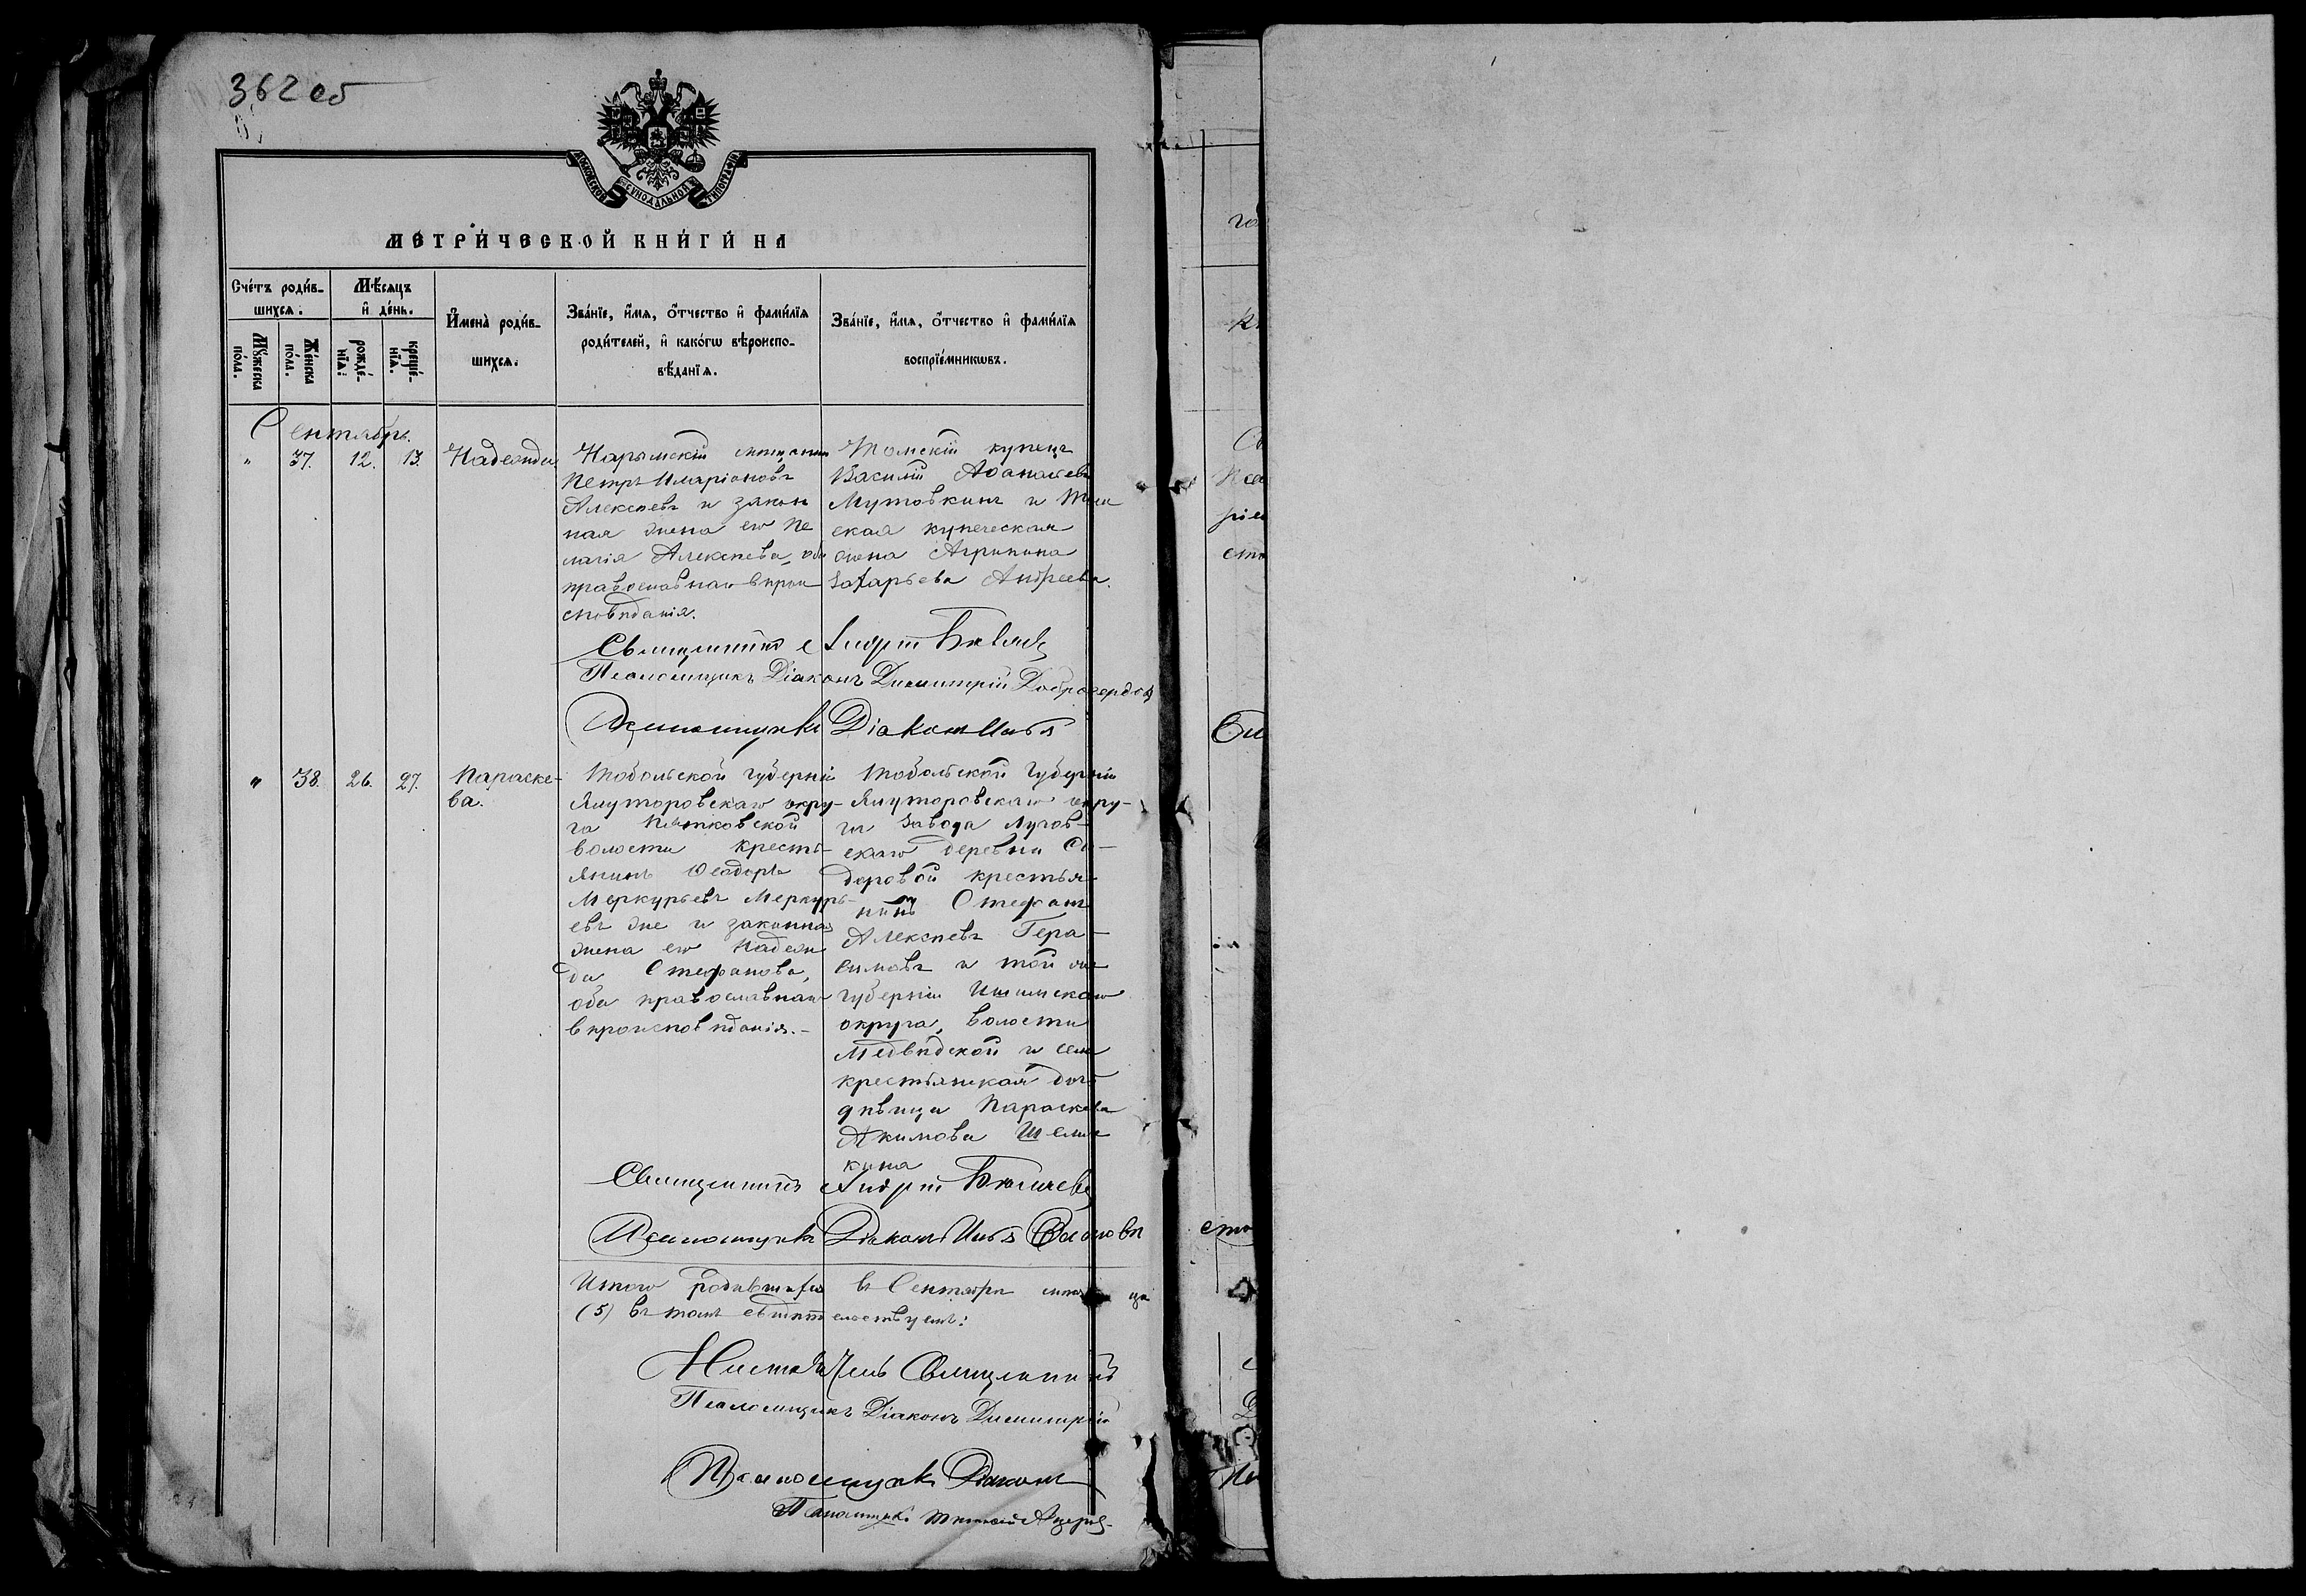 362 об
МОСКОВСКОЙ СѴНОДАЛЬНОЙ ТИПОГРАФІИ
МЕТРИ́ЧЕСКОЙ КНИ́ГИ НА
Сче́тъ роди́в-
шихсѧ:
Мѣ́сѧцъ
и҆ де́нь.
Мꙋ́жеска
по́ла.
Же́нска
по́ла.
рожде́-
нїѧ:
креще́-
нїѧ.
И҆мена̀ роди́в-
шихсѧ.
Зва́нїе, и҆́мѧ, ѻ҆́тчество и҆ фами́лїѧ
роди́телей, и҆ како́гѡ вѣроиспо-
вѣ́данїѧ.
Зва́нїе, и҆́мѧ, ѻ҆́тчество и҆ фами́лїѧ
воспрїе́мникѡвъ.
Сентябрь.
" 37. 12. 13. Надежда
Нарымскій мѣщанинъ
Петръ Иларіоновъ
Алексѣевъ и закон
ная жена его Пе
лагія Алексѣева, оба
православнаго вѣрои
сповѣданія.
Томскій купецъ
Василій Аѳанасьевъ
Мутовкинъ и Том
ская купеческая
жена Агрипина
Захарьева Андреева.
Священникъ Андрей
Псаломщикъ Діаконъ Димитрій Добросердовъ
Псаломщикъ Діаконъ Илья
" 38. 26. 27. Параске-
ва.
Тобольской губерніи
Ялуторовскаго окру-
га Пятковской
волости кресть-
янинъ Ѳеодоръ
Меркурьевъ Меркурь-
евъ же и законная
жена его Надеж
да Стефанова,
оба православнаго
вѣроисповѣданія.-
Тобольской Губерніи
Ялуторовскаго окру-
га Завода
скаго деревни Си-
доровой крестья-
нинъ Стефанъ
Алексѣевъ Гера-
симовъ и той же
губерніи Ишимскаго
округа, волости
Медвѣдской и села
крестьянская дочь
дѣвица Параскева
Акимова
кина
Священникъ Андрей
Псаломщикъ Діаконъ Илья
Итого родившихся въ Сентябрѣ мѣсяцѣ
(5) въ томъ свидѣтельствуемъ:
Настоятель Священникъ
Псаломщикъ Діаконъ Димитрій
Псаломщикъ Діаконъ
Псаломщикъ